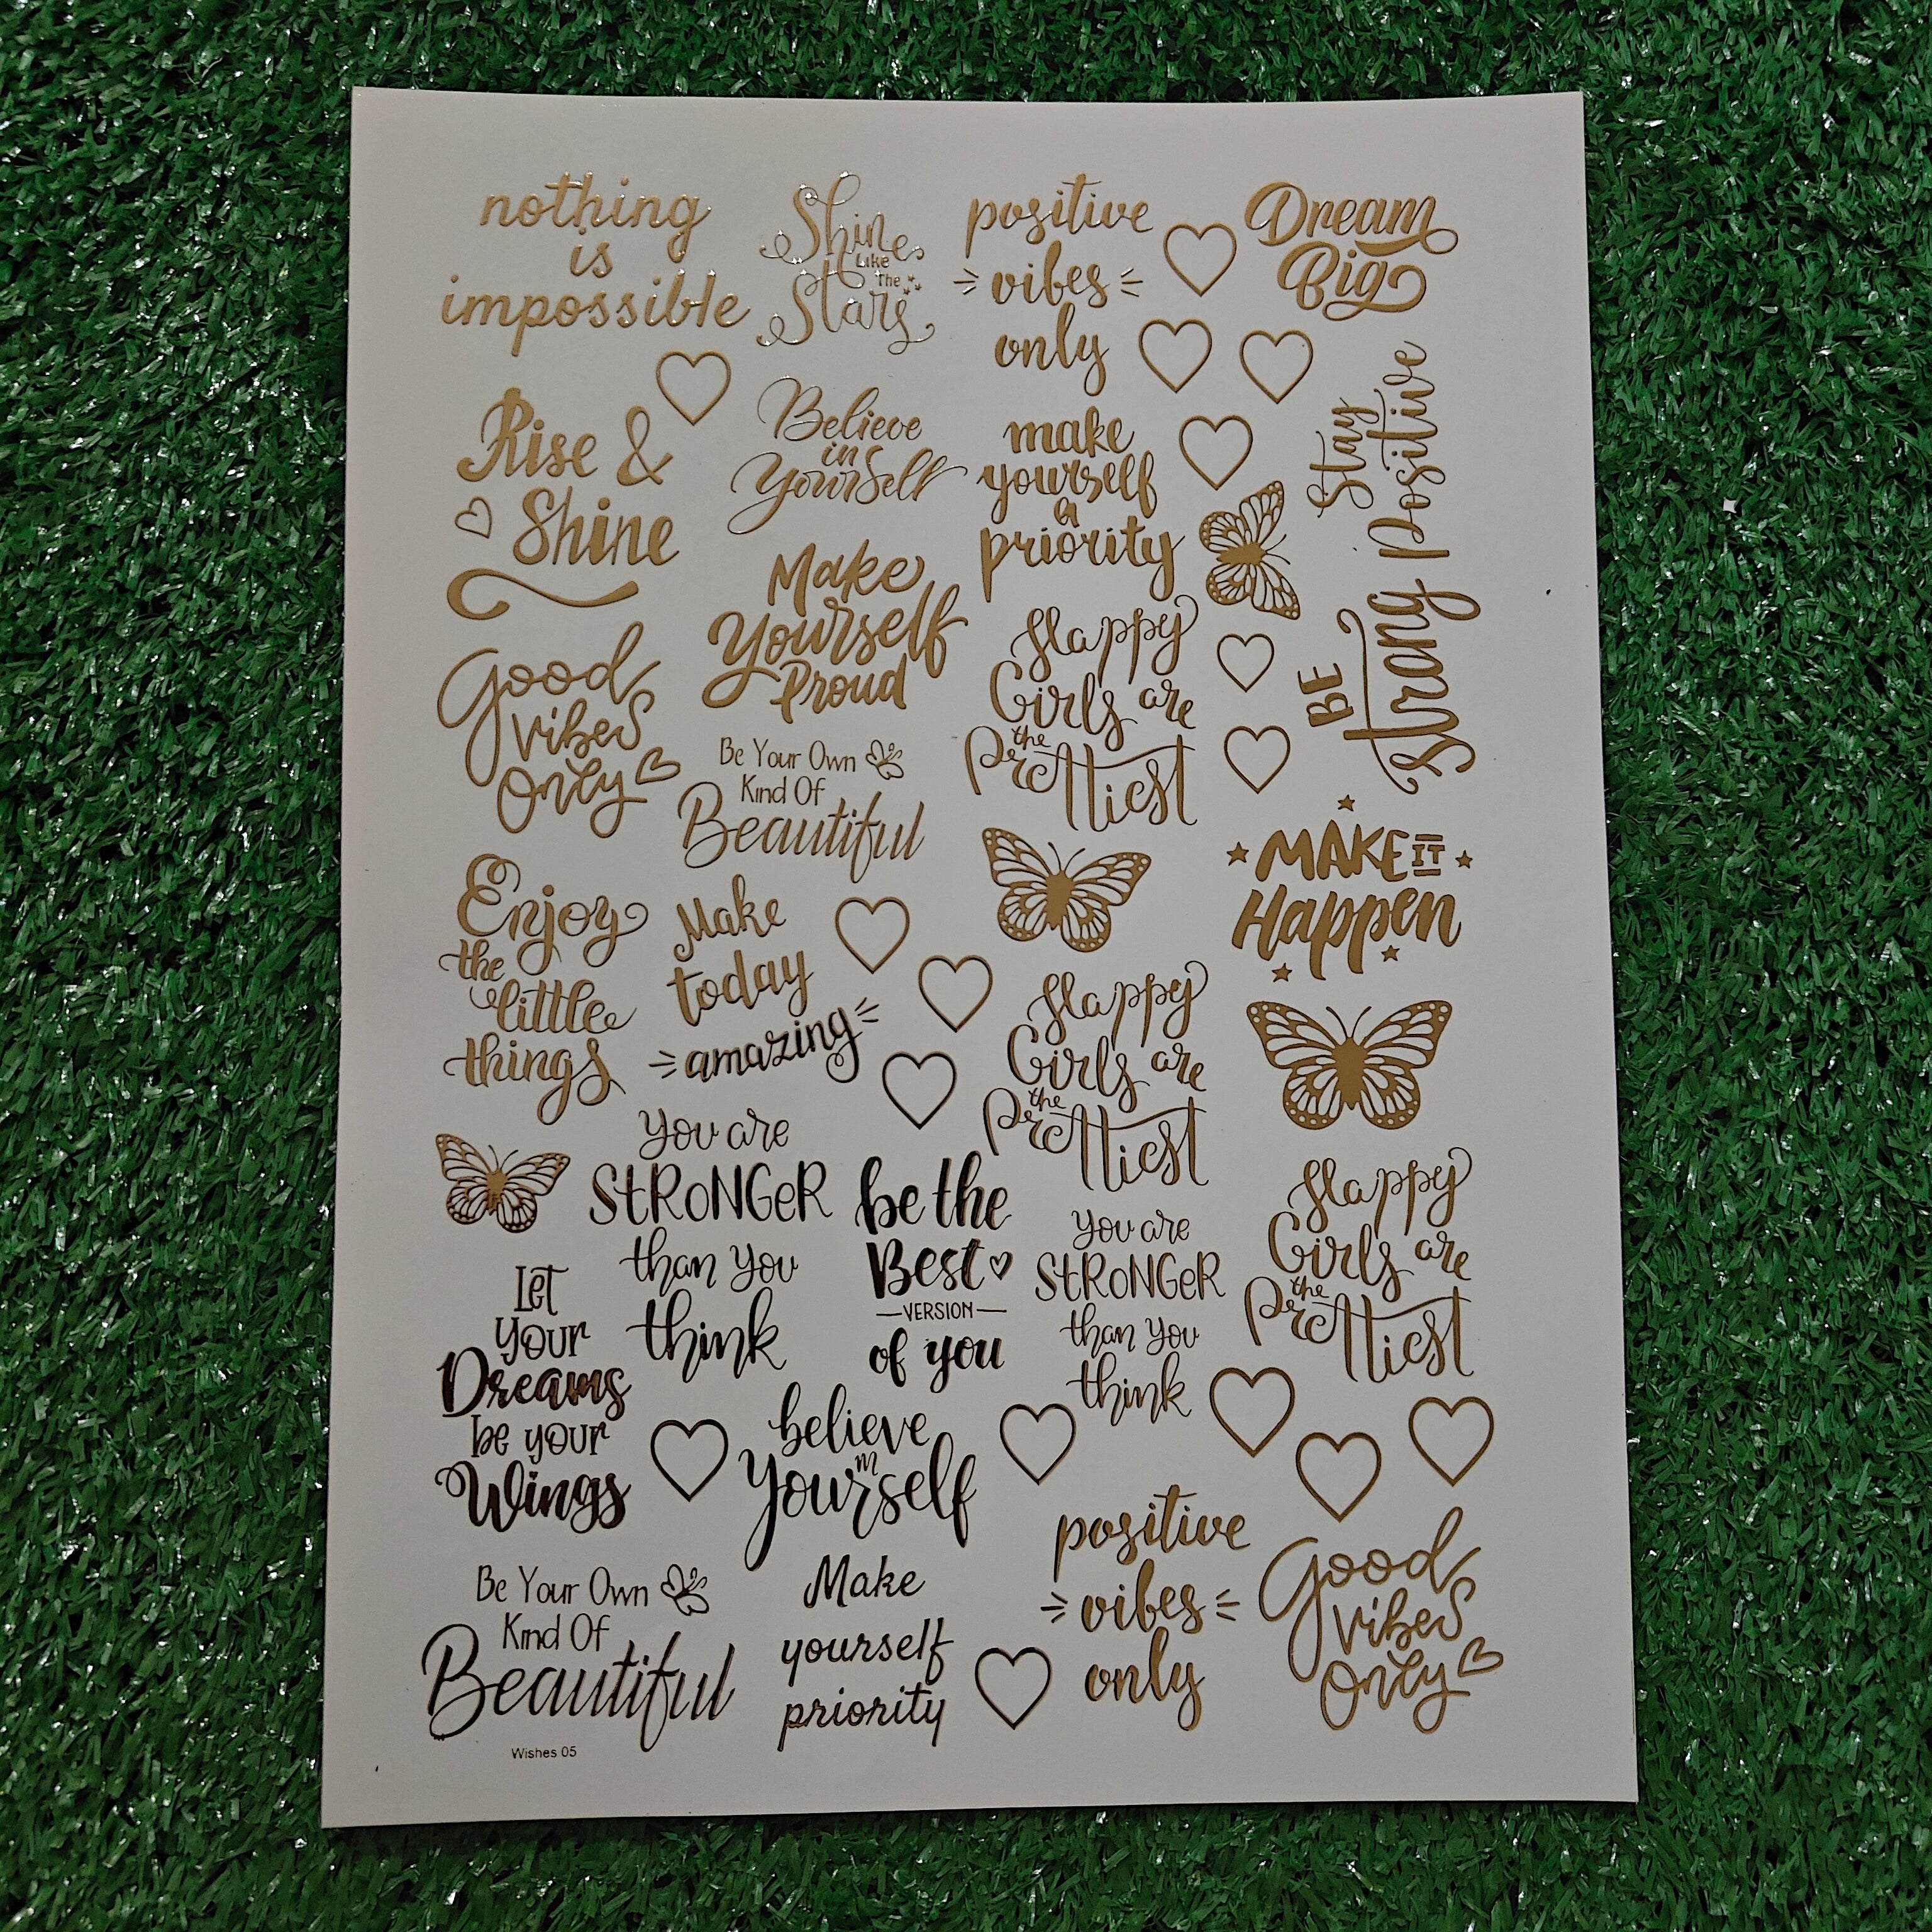 nothing
is
impossible
Shine
Like
The
Stars
positive
vibes
only
Dream
Big
Rise &
Shine
Believe
in
Yourself
make
yourself
a
priority
Stay
Positive
Good
vibes
Only
Make
Yourself
Proud
Happy
Girls are
the
Prettiest
BE
Strong
Be Your Own
Kind Of
Beautiful
MAKE IT
Happen
Enjoy
the
little
things
Make
today
amazing
Happy
Girls are
the
Prettiest
You are
STRONGER
than you
think
be the
Best
VERSION
of you
you are
STRONGER
than you
think
Happy
Girls are
the
Prettiest
Let
your
Dreams
be your
Wings
believe
in
yourself
positive
vibes
only
Good
vibes
Only
Be Your Own
Kind Of
Beautiful
Make
yourself
priority
Wishes 05